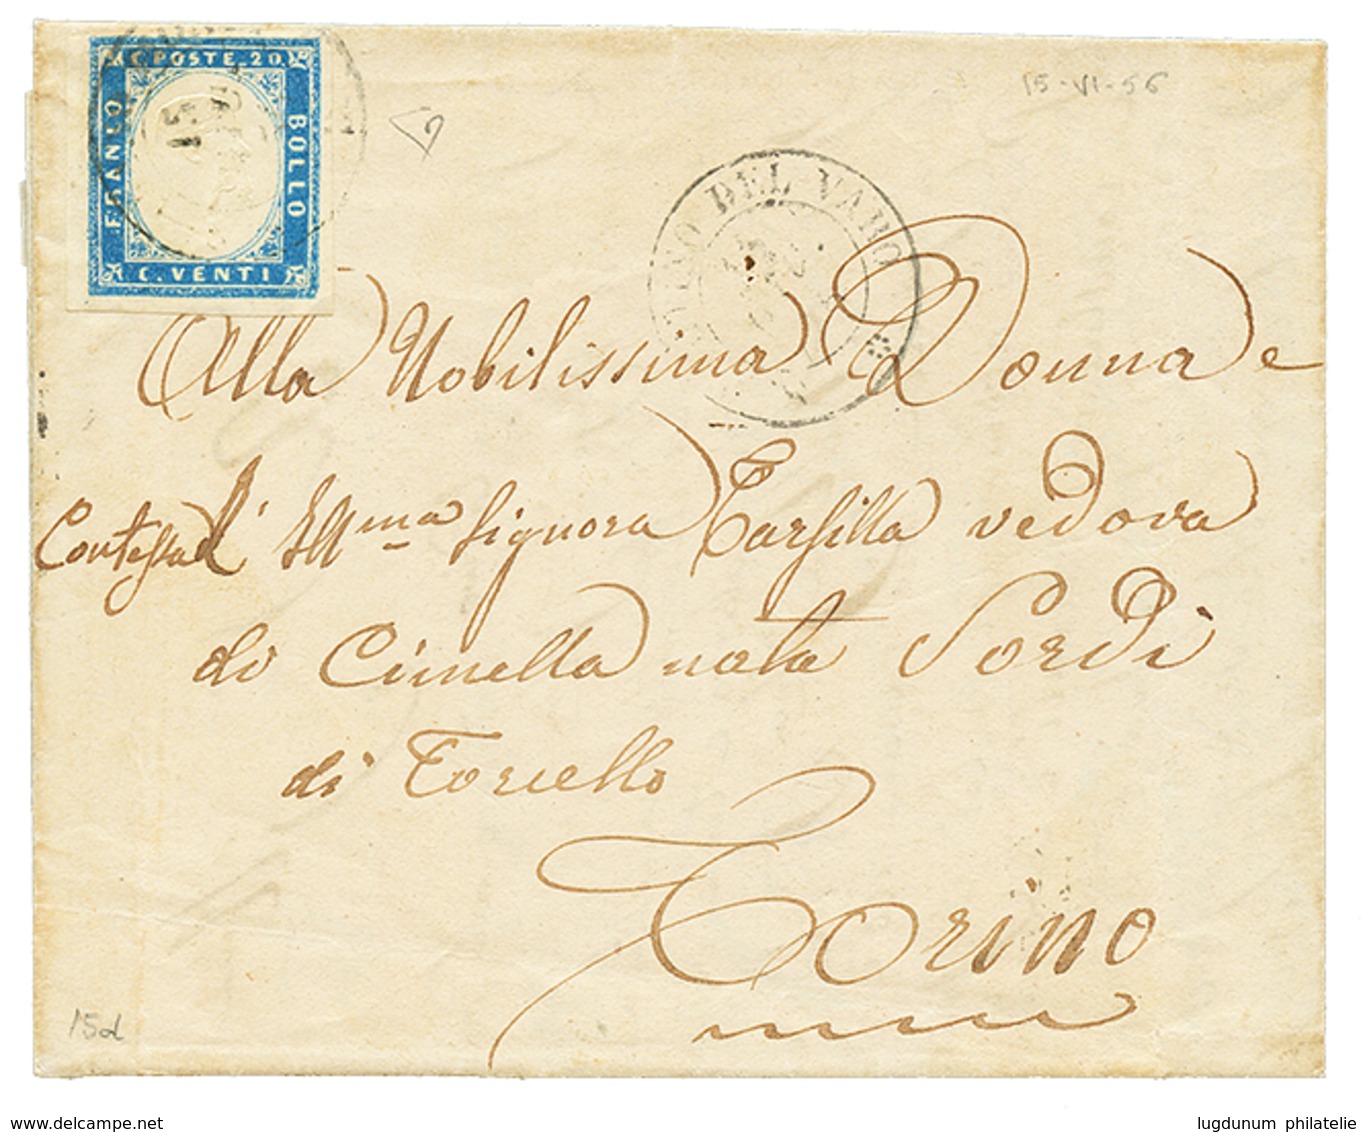 C. POSTE. 20.
FRANCO
BOLLO
C. VENTI
15
15-VI-56
DEL VARO
Alla Nobilissima Donna e
Contessa l' Illma Signora Tarsilla vedova
di Cimella nata Sordi
di Torcello
Torino
15d
www.delcampe.net
lugdunum philatelie